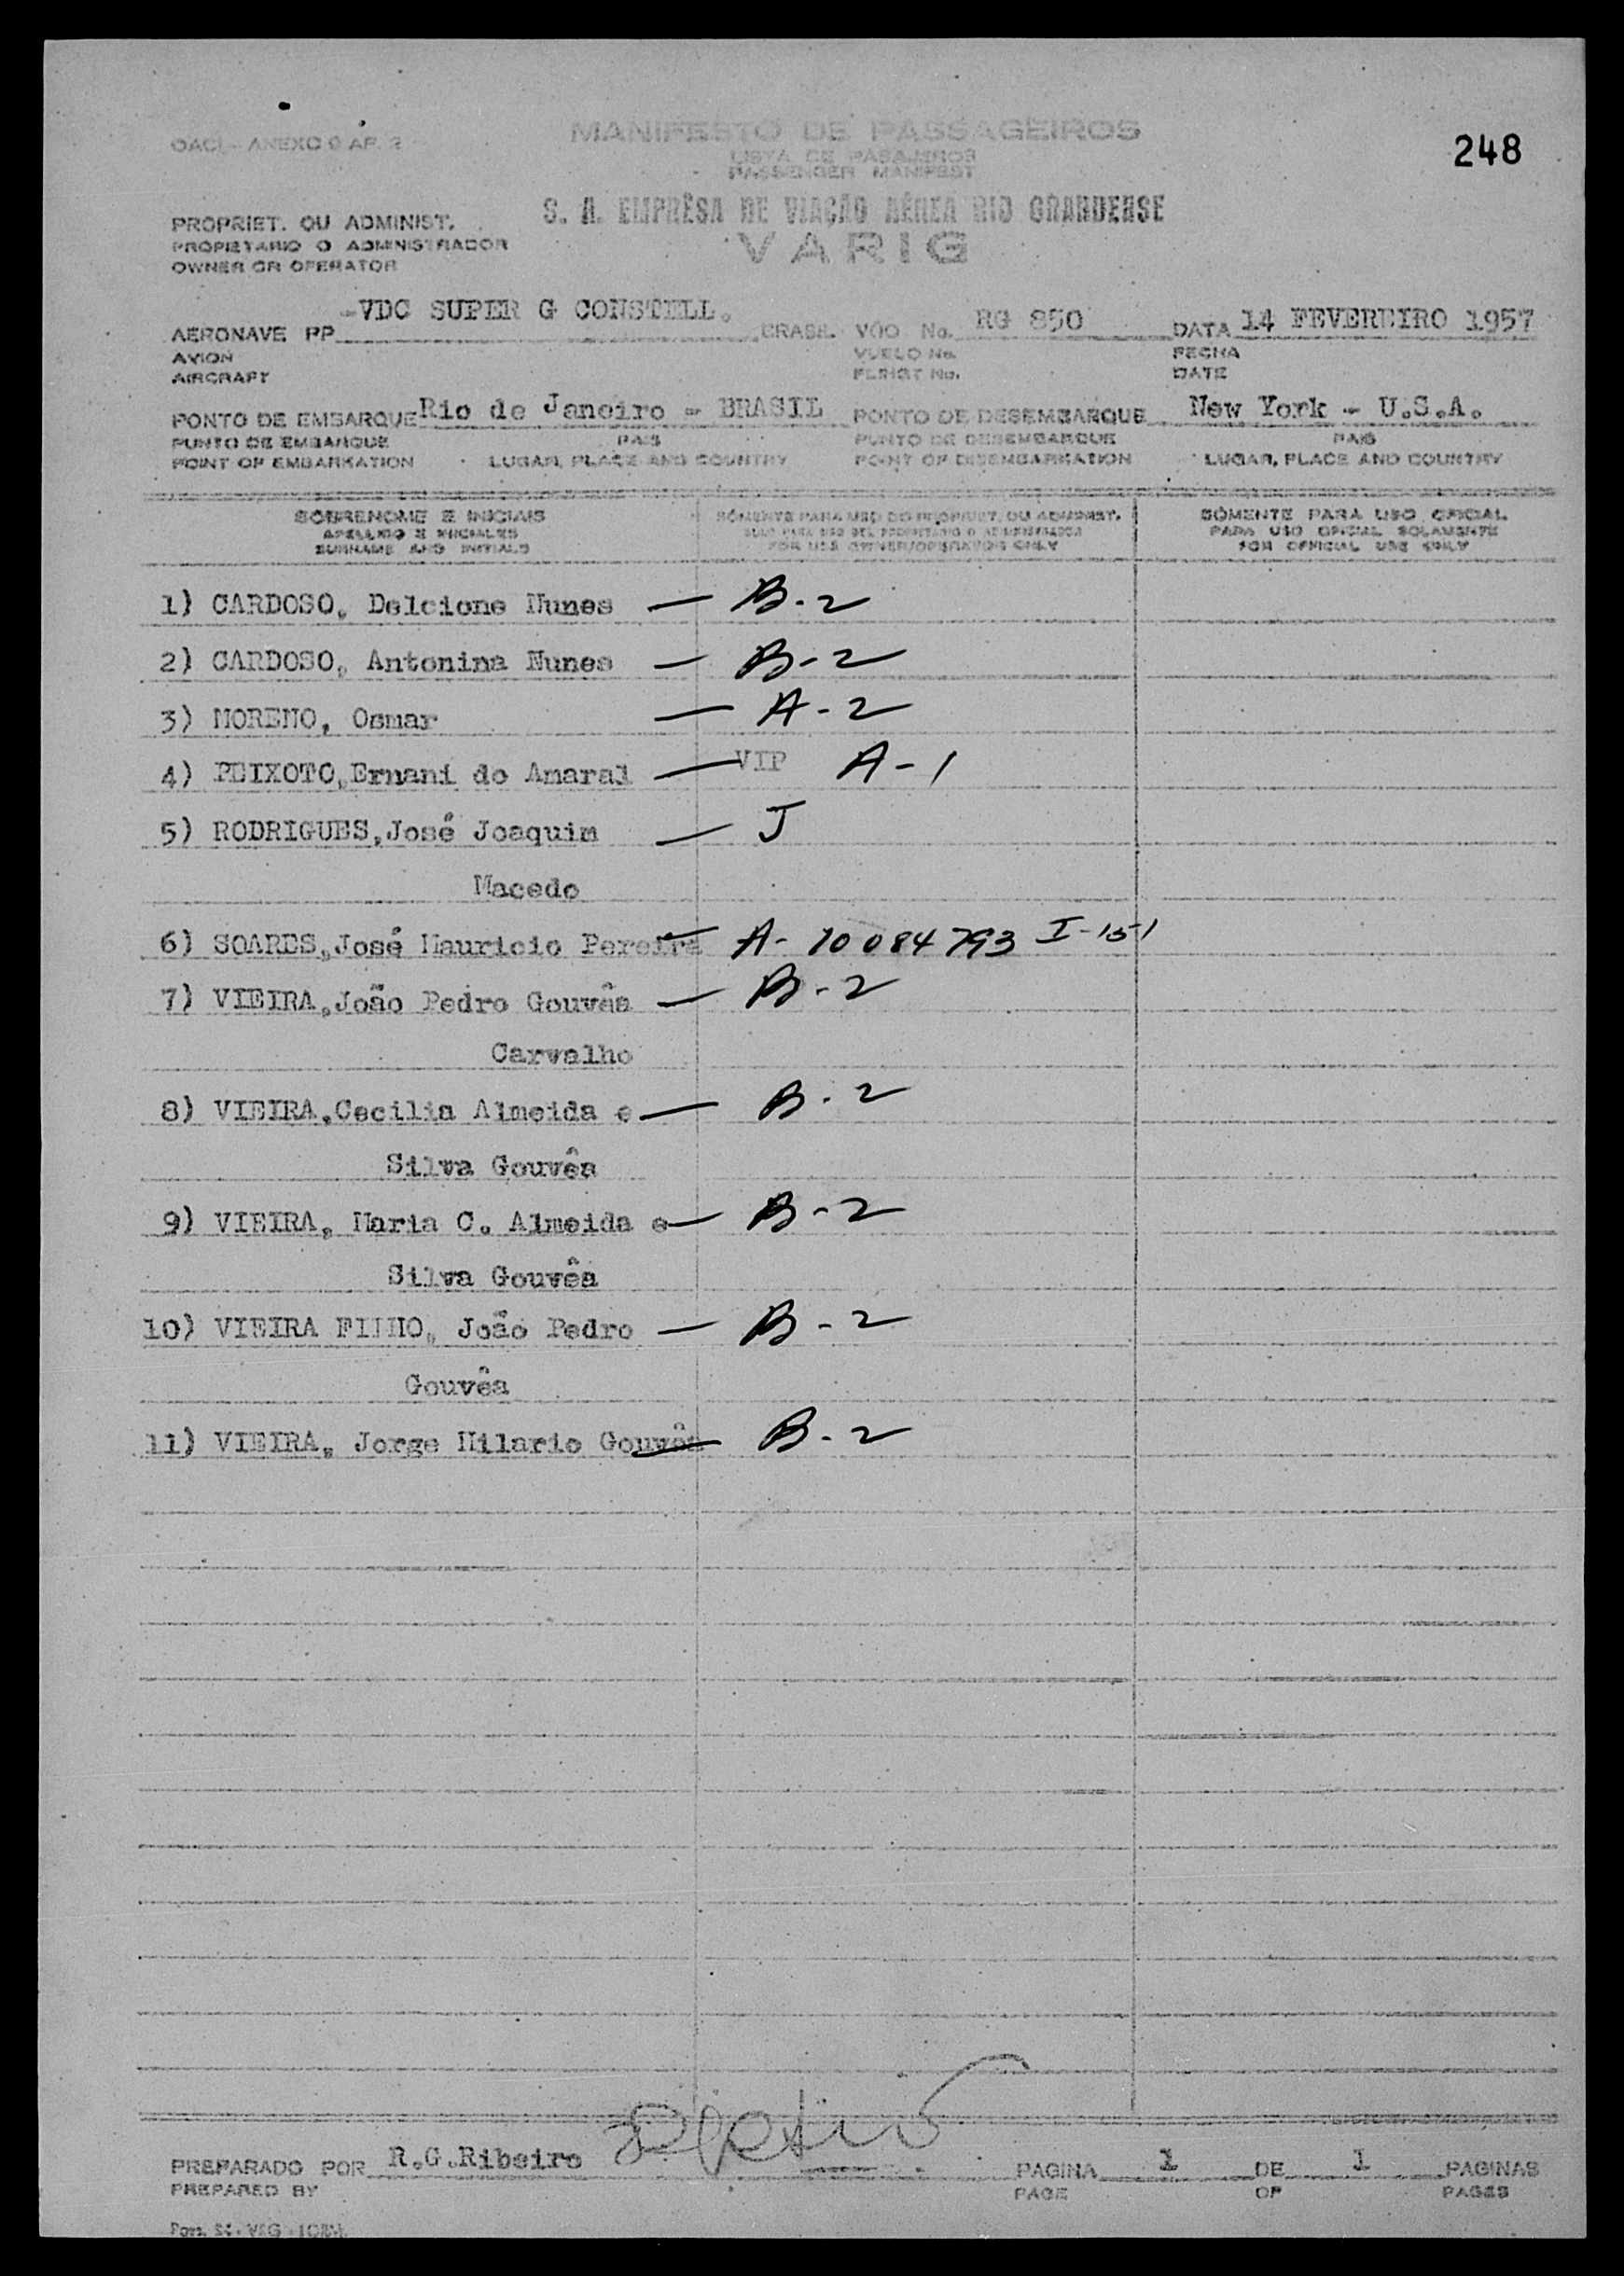 248
OACI - ANEXO 9 AP. 2
MANIFESTO DE PASSAGEIROS
LISTA DE PASAJEROS
PASSENGER MANIFEST
S. A. EMPRÊSA DE VIAÇÃO AÉREA RIO GRANDENSE
VARIG
PROPRIET. OU ADMINIST.
PROPIETARIO O ADMINISTRADOR
OWNER OR OPERATOR
AERONAVE PP -VDC SUPER G CONSTELL. BRASIL VÔO No. RG 850 DATA 14 FEVEREIRO 1957
AVION VUELO No. FECHA
AIRCRAFT FLRIGT No. DATE
PONTO DE EMBARQUE Rio de Janeiro - BRASIL PONTO DE DESEMBARQUE New York - U.S.A.
PUNTO DE EMBARQUE PAIS PUNTO DE DESEMBARQUE PAIS
POINT OF EMBARKATION LUGAR, PLACE AND COUNTRY POINT OF DISEMBARKATION LUGAR, PLACE AND COUNTRY
SOBRENOME E INICIAIS SÓMENTE PARA USO DO PROPRIET. OU ADMINIST. SÓMENTE PARA USO OFICIAL
APELLIDO E INICIALES SOLO PARA USO DEL PROPIETARIO O ADMINISTRADOR PARA USO OFICIAL SOLAMENTE
SURNAME AND INITIALS FOR USE OWNER/OPERATOR ONLY FOR OFFICIAL USE ONLY
1) CARDOSO, Delcione Nunes — B-2
2) CARDOSO, Antonina Nunes — B-2
3) MORENO, Osmar — A-2
4) PEIXOTO, Ernani do Amaral — VIP A-1
5) RODRIGUES, José Joaquim — J
Macedo
6) SOARES, José Mauricio Pereira — A-10084793 I-151
7) VIEIRA, João Pedro Gouvêa — B-2
Carvalho
8) VIEIRA, Cecilia Almeida e — B-2
Silva Gouvêa
9) VIEIRA, Maria C. Almeida e — B-2
Silva Gouvêa
10) VIEIRA FILHO, João Pedro — B-2
Gouvêa
11) VIEIRA, Jorge Hilario Gouvêa — B-2
PREPARADO POR R.G.Ribeiro PAGINA 1 DE 1 PAGINAS
PREPARED BY PAGE OF PAGES